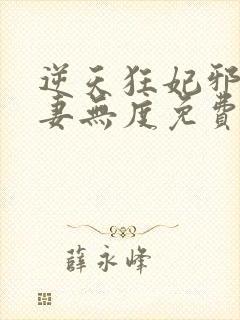 逆天狂妃邪
妻無度免費
薛永峰